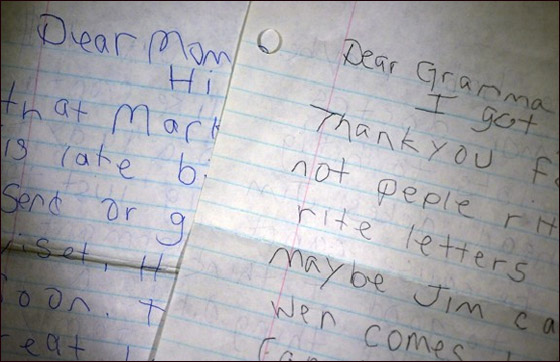 Dear Mom
Hi
that Mark
is late b
Send or g
viset, H
soon. T
eat
Dear Gramma
I got
Thank you fo
not peple rit
rite letters
maybe Jim ca
wen comes